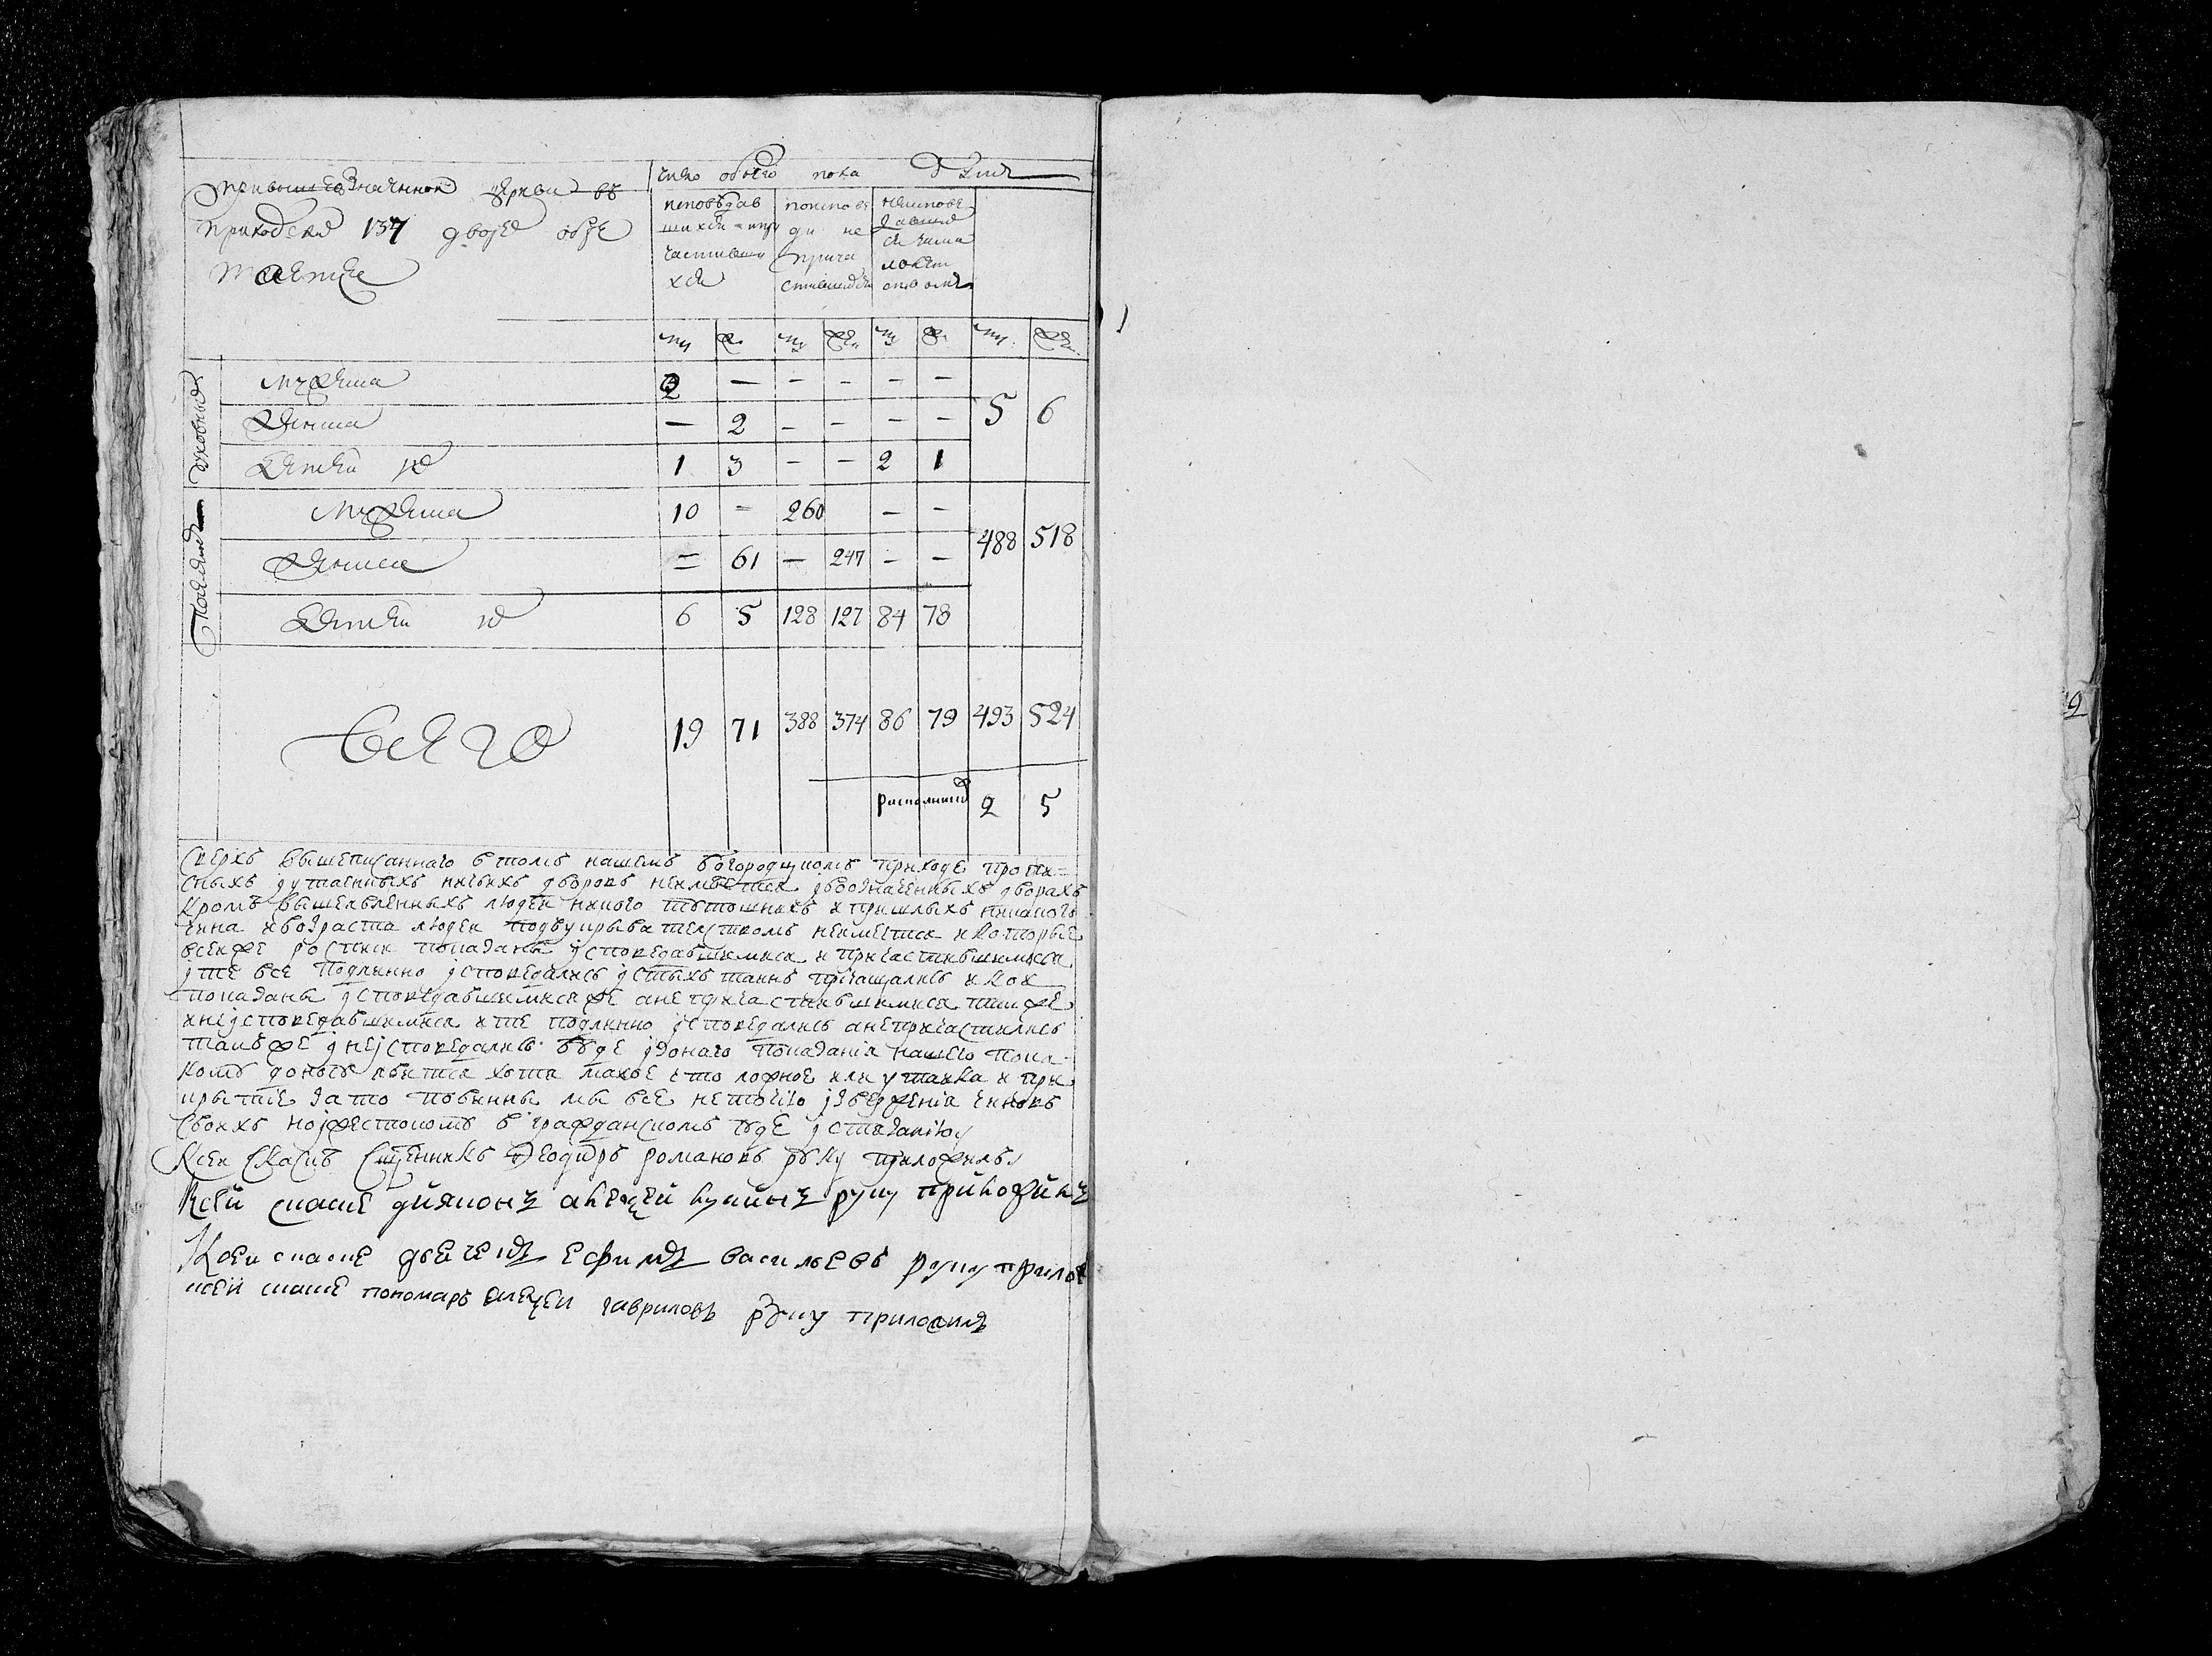 при вышеозначенной церкви въ
приходскихъ 137 дворехъ обре
тается
число обоего пола душъ
исповедав
шихся и при
частивши
хся
по исповѣ
ди не
прича
стившихся
не исповѣ
давших
ся
му ж му же му ж му же
духовныхъ
мужеска 2 — — — — — 5 6
женска — 2 — — — —
детей ихъ 1 3 — — 2 1
мужеска 10 = 260 — — 488 518
женска = 61 — 247 — —
детей ихъ 6 5 128 127 84 78
всего 19 71 388 374 86 79 493 524
2 5
Сверхъ вышеписаннаго в томъ нашемъ богородцкомъ приходе пропи=
сныхъ и утаенныхъ ничьихъ дворовъ неимеется и вбозначенныхъ дворахъ
Кромѣ вышеявленныхъ людей никого тутошныхъ и пришлыхъ никакого
чина и возраста людей под укрывателствомъ неимеется и которые
всей же росписи показаны исповедавшимися и причастившимися
и те все подлинно исповедались и стыхъ таинъ причащались и кои
показаны исповедавшимися же а не причастившимися такъже
и неисповедавшимися и те подлинно исповедались а не причастились
такъже и неисповедались буде изонаго показаниа нашего по ка
кому доносу явится хотя малое что ложное или утайка и при
крытие за то повинны мы все не точию извержениа чиновъ
своихъ но и жестокомъ в гражданскомъ суде истязанию
К сей скаскѣ священникъ Феодоръ романовъ руку приложилъ
К сей скаске дияконъ алексей кузминъ руку приложилъ
К сей скаске дьячекъ ефимъ васильевъ руку прилож
к сей скаске пономарь алексеи гавриловъ руку приложилъ